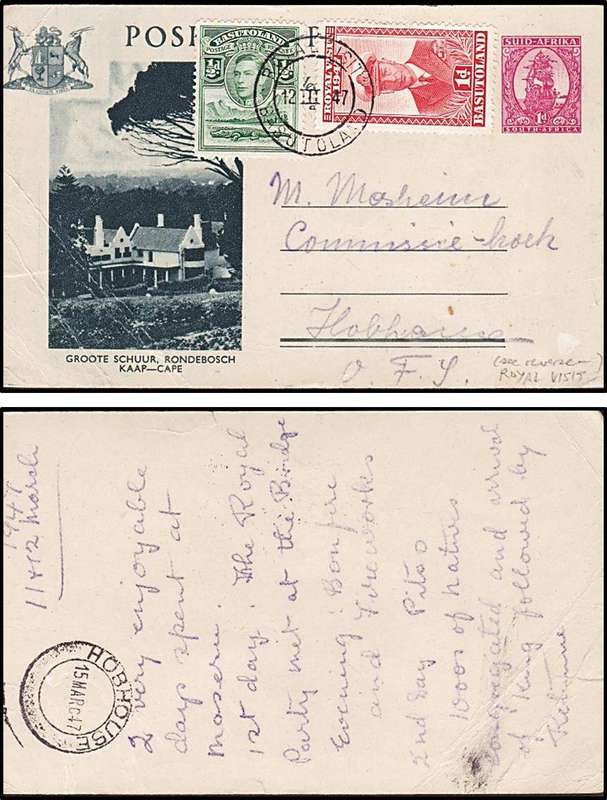 POS
BASUTOLAND
POSTAGE
½D
ROYAL VISIT
12 III 47
BASUTOLAND
ROYAL VISIT
1947
BASUTOLAND
1D
SUID-AFRIKA
1D
SOUTH-AFRICA
M. Mosheim
Commissie-hoek
Hobhouse
O. F. S.
(see reverse—)
ROYAL VISIT
GROOTE SCHUUR, RONDEBOSCH
KAAP—CAPE
1947
11 & 12 March
2 very enjoyable
days spent at
Maseru. The Royal
1st day.
Party met at the Bridge
Evening: Bonfire
and Fireworks
2nd day Pitso
1000s of natives
congregated and arrival
of King followed by
HOBHOUSE
15 MARC 47